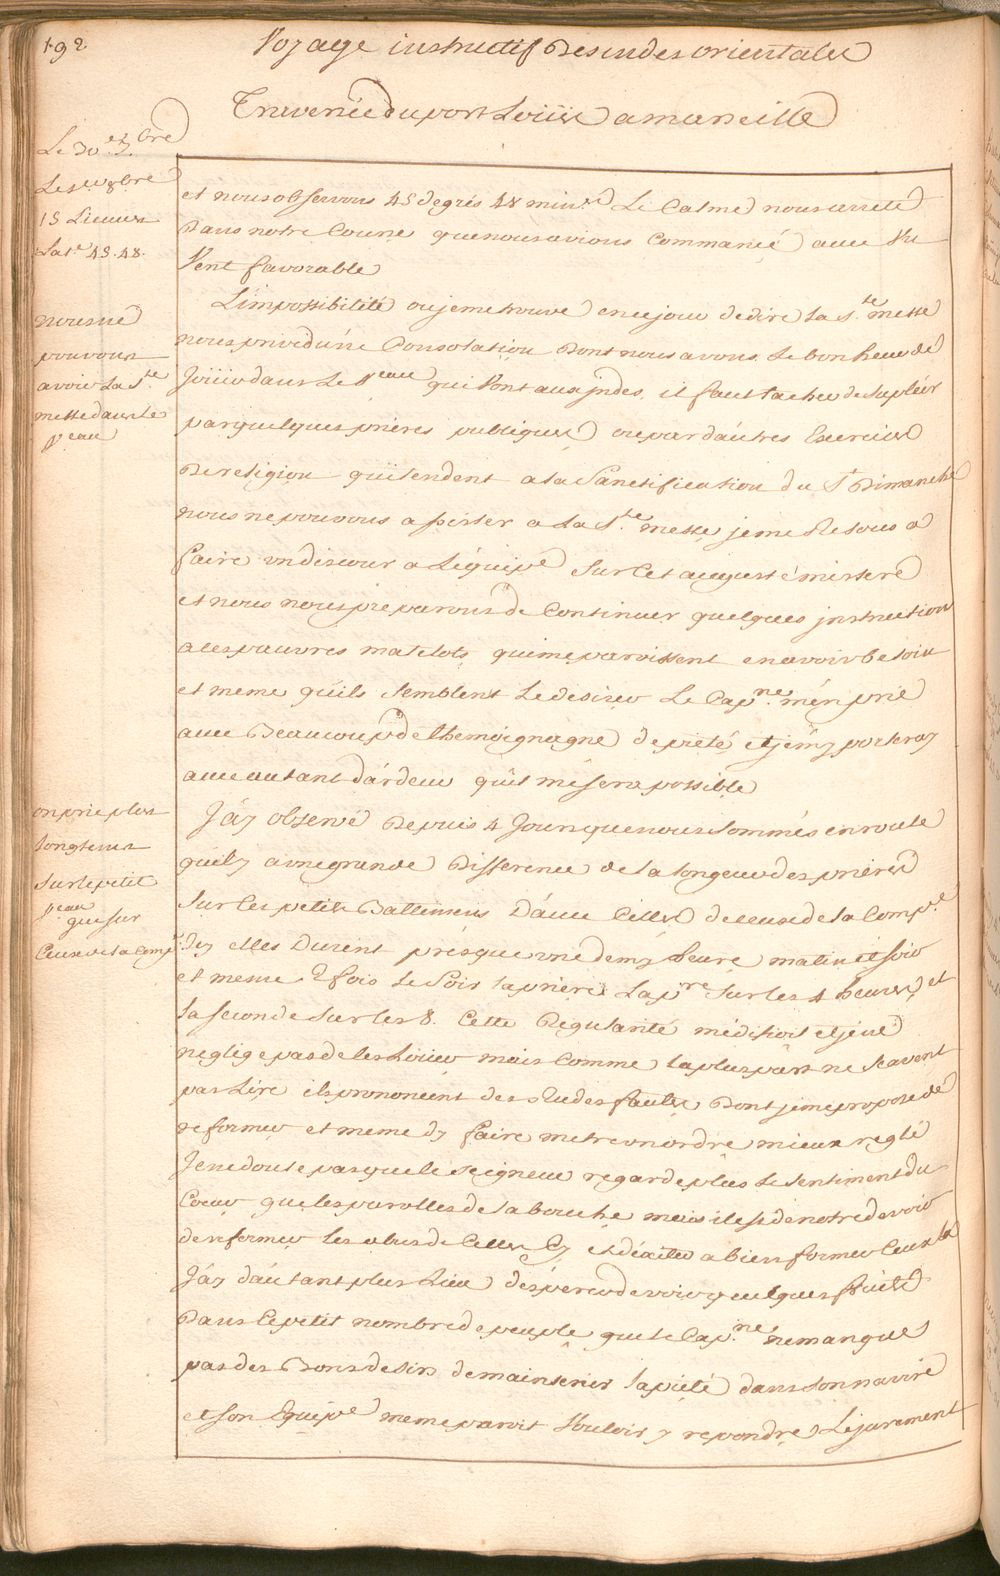 192
Voyage instructif Des indes orientales
Traversée du port Loüis a marseille
Le 30e 7bre
15 Lieues
Latde 45. 48.
et nous observons 45 degrés 48 mines Le Calme nous arreté
Dans notre Course que nous avions Commancé avec Un
Vent favorable
nous ne
pouvons
avoir La Ste
messe dans Le
veau
L'impossibilité ou je me trouve en ce jour de dire La Ste messe
nous prive d'une Consolation Dont nous avons Le bonheur de
Joüir dans Les Veaux qui Vont aux jndes, il faut tacher de Supléer
par quelques prières publiques ou par d'autres Exercices
De religion qui tendent a la Sanctification du St Dimanche
nous ne pouvons assister a La Ste messe je me Resous a
faire un discour a L'équipe Sur Cet auguste mistere
et nous nous preparons de Continuer quelques jnstructions
a ces pauvres matelots qui me paroissent en avoir besoin
et meme qu'ils Semblent Le desirer Le Capne m'en prie
avec Beaucoup de themoignagne de pieté et j'emy porteray
avec autant d'ardeur qu'il me sera possible
on prie plus
Longtems
Sur le petit
veau que Sur
Ceux de La Comp
J'ay observé Depuis 4 Jours que nous Sommes en route
qu'il y a une grande Difference de La longeur des prières
Sur Ces petits Battimens D'avec Celles de ceux de La Compe
des jndes elles Durent présque une demy heure matin et soir
et meme 2 fois Le Soir la prière La pre Sur les 4 heures et
La seconde Sur les 8. Cette Regularité m'édifioit et je ne
neglige pas de les Loüer mais Comme la plus part ne Scavent
pas Lire ils prononcent des Rudes fautes Dont je me propose de
reformer et meme d'y faire metre un ordre mieux reglé
Je ne doute pas que le Seigneur regarde plus Le Sentiment du
Coeur que les parolles de la bouche mais il est de notre devoir
de reformer Les abus de Celles Cy et d'aider a bien former Ceux la
J'ay d'autant plus Lieu d'éspérer de voir quelques fruits
Dans Ce petit nombre de peuple que Le Capne ne manque
pas des Bons desirs de maintenir la pieté dans Son navire
et Son Equipe meme paroit Vouloir y repondre Le jurement